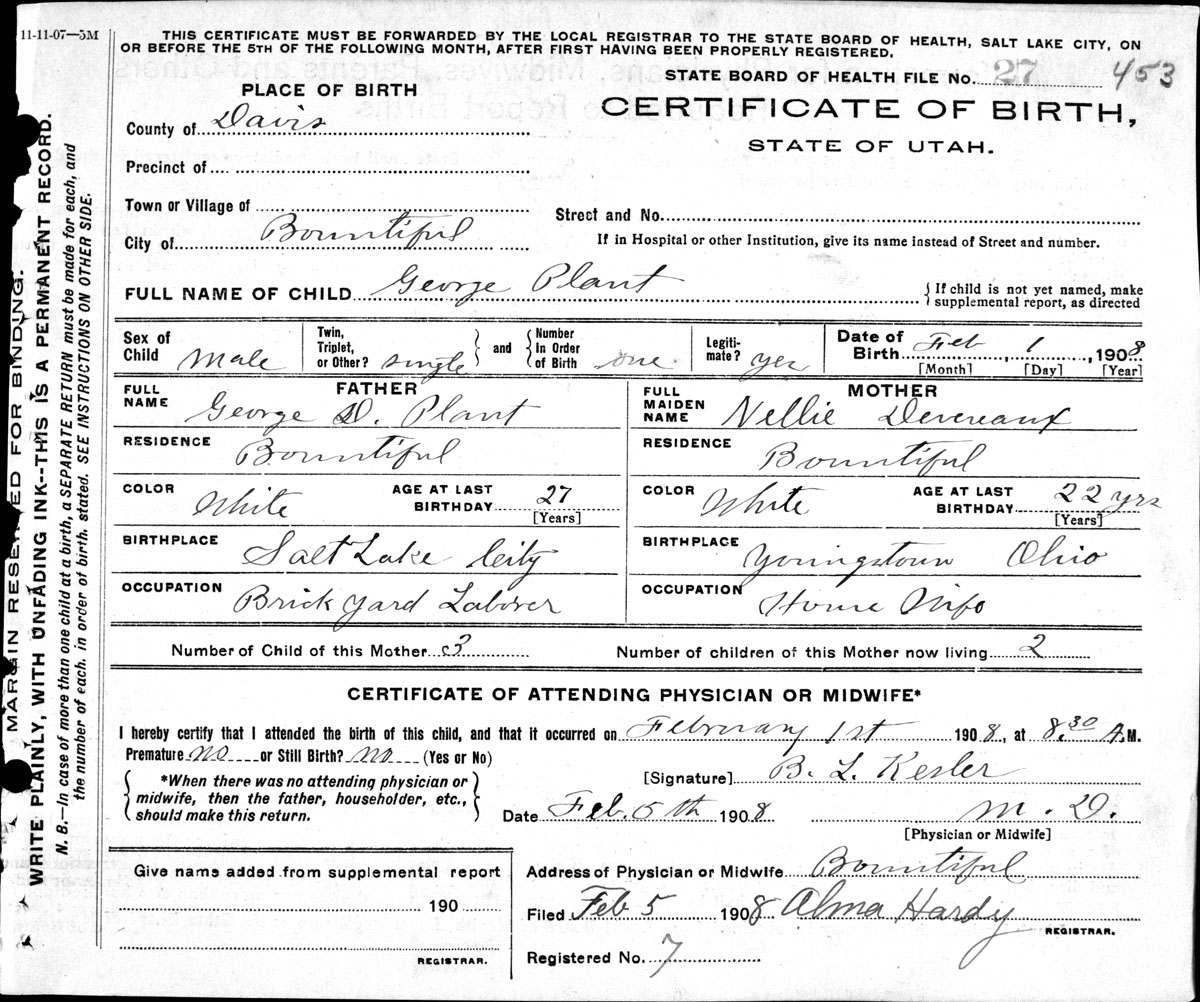 11-11-07—5M
THIS CERTIFICATE MUST BE FORWARDED BY THE LOCAL REGISTRAR TO THE STATE BOARD OF HEALTH, SALT LAKE CITY, ON
OR BEFORE THE 5TH OF THE FOLLOWING MONTH, AFTER FIRST HAVING BEEN PROPERLY REGISTERED.
STATE BOARD OF HEALTH FILE No. 27 453
PLACE OF BIRTH
CERTIFICATE OF BIRTH,
STATE OF UTAH.
County of Davis
Precinct of
Town or Village of
Street and No.
City of Bountiful
If in Hospital or other Institution, give its name instead of Street and number.
FULL NAME OF CHILD George Plant
If child is not yet named, make
supplemental report, as directed
Sex of Child Male
Twin, Triplet, or Other? single and Number In Order of Birth one
Legiti-mate? yes
Date of Birth Feb 1, 1908
[Month] [Day] [Year]
FATHER
FULL NAME George D. Plant
MOTHER
FULL MAIDEN NAME Nellie Devereaux
RESIDENCE Bountiful
RESIDENCE Bountiful
COLOR White AGE AT LAST BIRTHDAY 27 [Years]
COLOR White AGE AT LAST BIRTHDAY 22 yrs [Years]
BIRTHPLACE Salt Lake City
BIRTHPLACE Youngstown Ohio
OCCUPATION Brick yard Laborer
OCCUPATION House Wife
Number of Child of this Mother 3
Number of children of this Mother now living 2
CERTIFICATE OF ATTENDING PHYSICIAN OR MIDWIFE*
I hereby certify that I attended the birth of this child, and that it occurred on February 1st 1908, at 8.30 A.M.
Premature no or Still Birth? no (Yes or No)
*When there was no attending physician or
midwife, then the father, householder, etc.,
should make this return.
[Signature] B. L. Kesler
Date Feb. 5th 1908 M. D.
[Physician or Midwife]
Give name added from supplemental report
190
REGISTRAR.
Address of Physician or Midwife Bountiful
Filed Feb 5 1908 Alma Hardy
REGISTRAR.
Registered No. 7
MARGIN RESERVED FOR BINDING.
WRITE PLAINLY, WITH UNFADING INK--THIS IS A PERMANENT RECORD.
N. B.—In case of more than one child at a birth, a SEPARATE RETURN must be made for each, and
the number of each, in order of birth, stated. SEE INSTRUCTIONS ON OTHER SIDE.